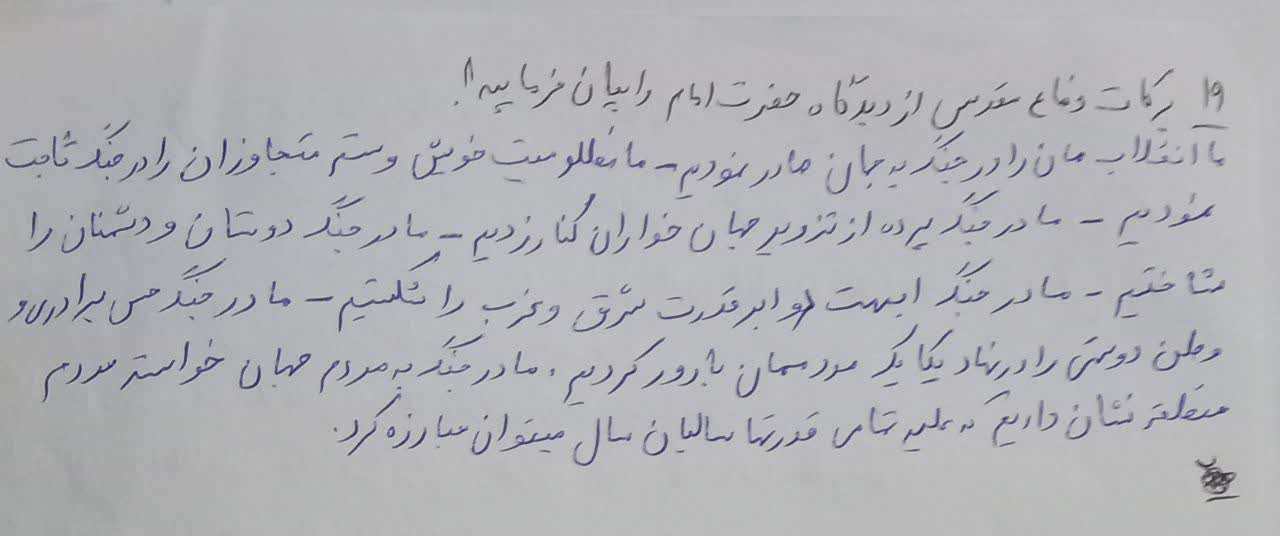 ۱۹ برکات دفاع مقدس از دیدگاه حضرت امام را بیان فرمایید؟!
ما انقلاب مان را در جنگ به جهان صادر نمودیم – ما مظلومیت خویش و ستم متجاوزان را در جنگ ثابت
نمودیم – ما در جنگ پرده از تزویر جهان خواران کنار زدیم – ما در جنگ دوستان و دشمنان را
شناختیم – ما در جنگ ابهت دو ابر قدرت شرق و غرب را شکستیم – ما در جنگ حس برادری و
وطن دوستی را در نهاد یکایک مردممان بارور کردیم. ما در جنگ به مردم جهان خواسته مردم
منطقه نشان دادیم که علیه تمامی قدرتها سالیان سال میتوان مبارزه کرد.